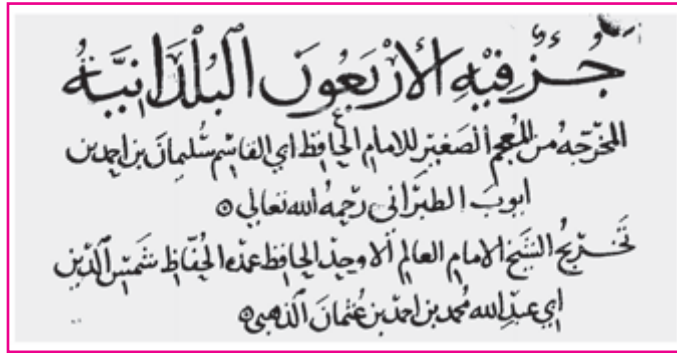 جُزْءٌ فِيْهِ الأَرْبَعُونَ البُلْدَانِيَّةُ
المخرّجهُ من المُعجم الصَّغِيْر للامام الحَافِظ ابي القاسِم سُليمانَ بن احمد بن
ايوبَ الطبَرانى رَحِمهُ الله تعالى
تَخْريجُ الشيخ الامام العالم الاوحد الحافظ عمدة الحُفَّاظ شمس الدِّين
ابي عبدِ الله محمد بن احمد بن عُثمانَ الذهبى